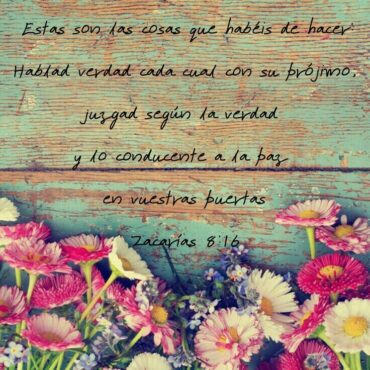 Estas son las cosas que habéis de hacer:
Hablad verdad cada cual con su prójimo,
juzgad según la verdad
y lo conducente a la paz
en vuestras puertas
Zacarías 8:16